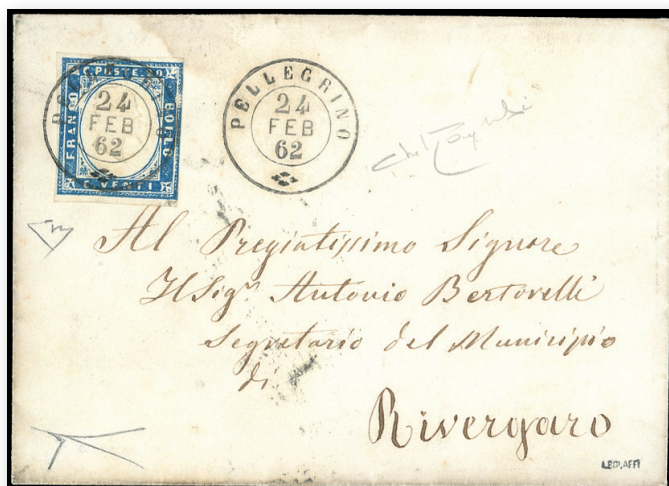 C. POSTE 20
FRANCO
BOLLO
C. VENTI
24
FEB
62
PELLEGRINO
24
FEB
62
Al Pregiatissimo Signore
Il Sigr. Antonio Bertorelli
Segretario del Municipio
di
Rivergaro
A.BOLAFFI